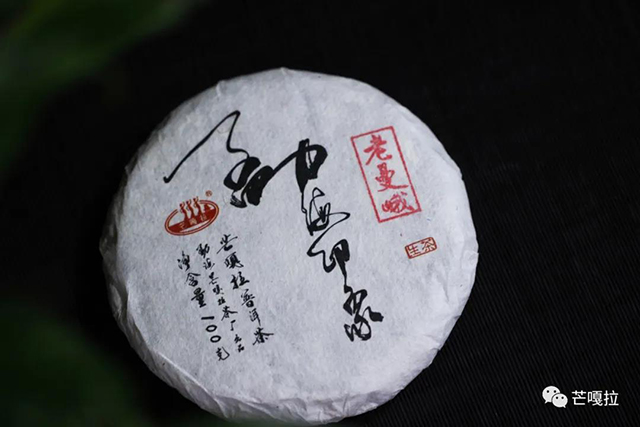 勐海印象
老曼峨
生茶
芒嘎拉
芒嘎拉普洱茶
勐海芒嘎拉茶厂出品
净含量100克
芒嘎拉